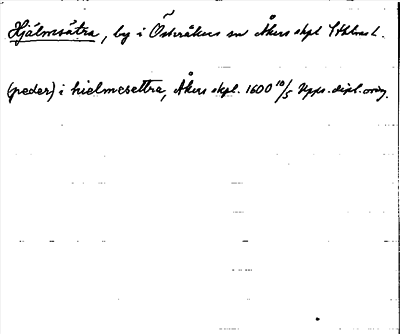 Hjälmsätra, by i Österåkers sn Åkers skpl Sthlms l.
(peder) i hielmesettra, Åkers skpl. 1600 10/5 Upps. dipl. orig.